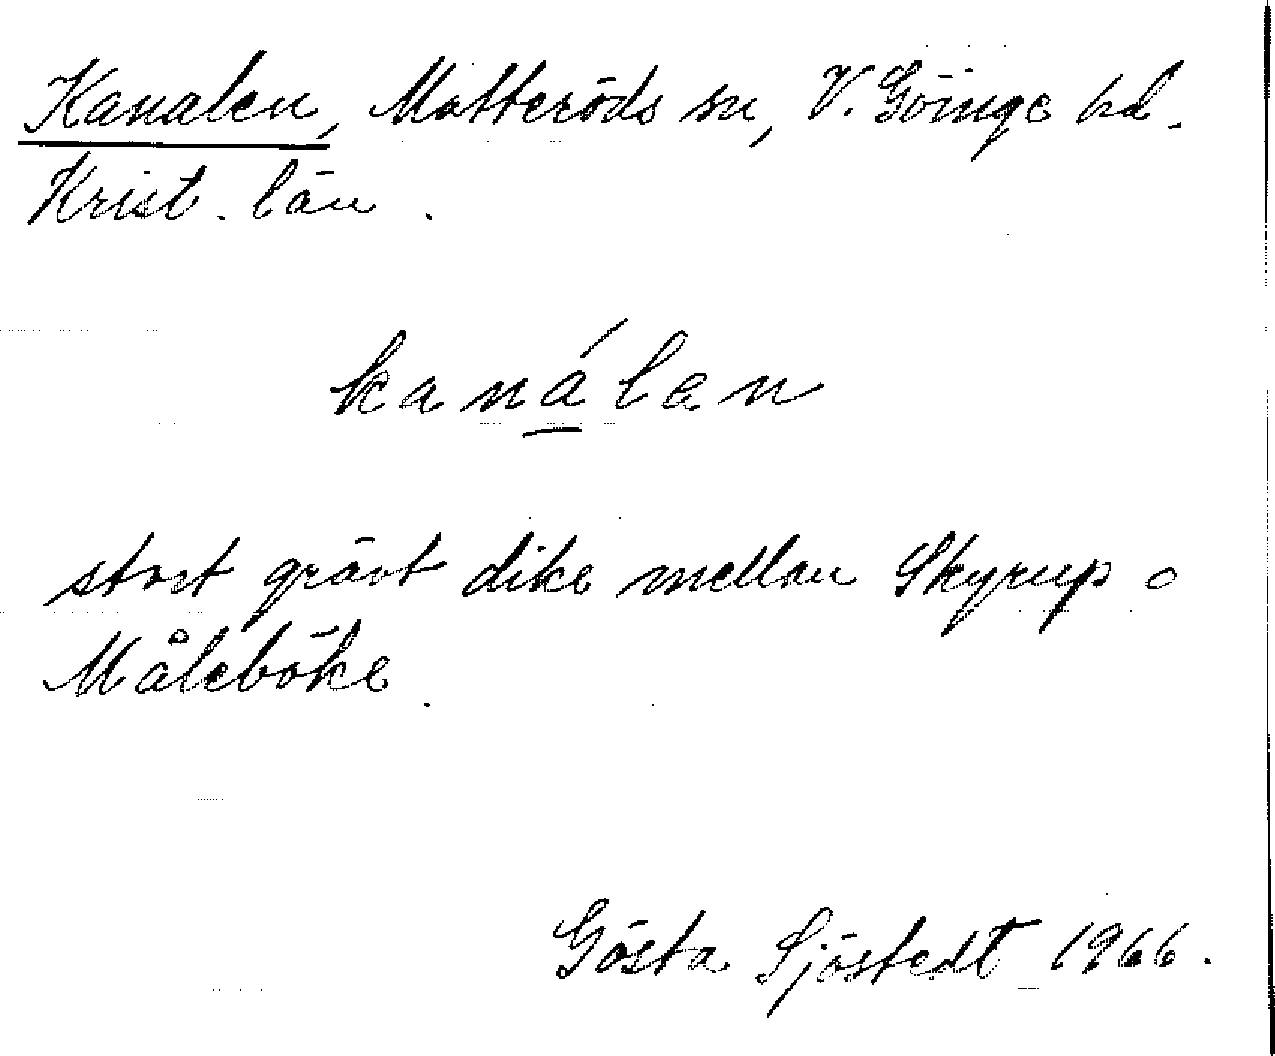 Kanalen, Matteröds sn, V. Göinge hd.
Krist. län.
kanálan
stort grävt dike mellan Skyrup o
Måleböke.
Gösta Sjöstedt 1966.